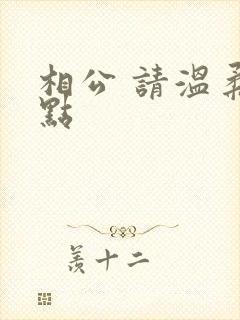 相公 請溫柔
點
羨十二